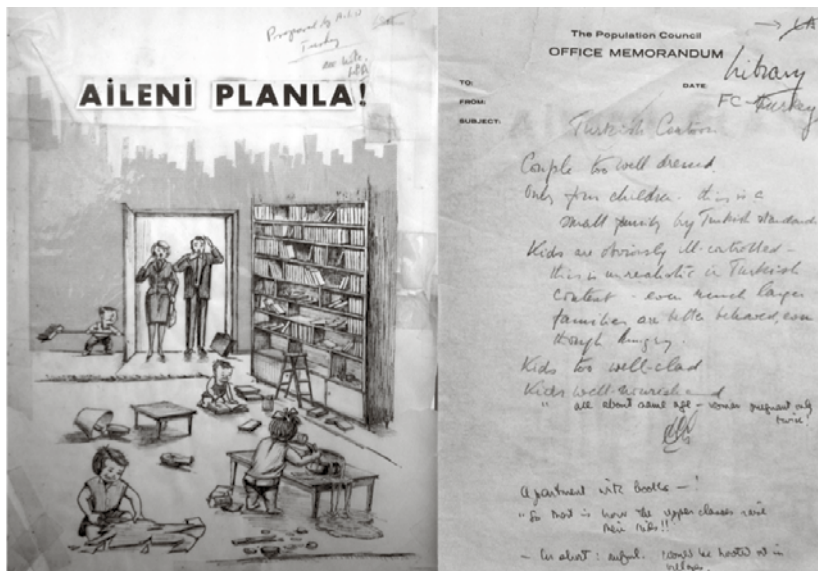 Prepared by A.I.D
Turkey
see note.
AİLENİ PLANLA!
The Population Council
OFFICE MEMORANDUM
TO:
DATE:
Library
FROM:
FC-Turkey
SUBJECT:
Turkish Cartoon
Couple too well dressed.
Only four children - this is a
small family by Turkish standards
Kids are obviously ill-controlled -
this is unrealistic in Turkish
context - even much larger
families are better behaved, even
though hungry.
Kids too well-clad
Kids well-nourished
" all about same age - woman pregnant only
twice!
Apartment with books - !
"So that is how the upper classes raise
their kids!!"
- In short: awful. Would be hooted out in
villages.